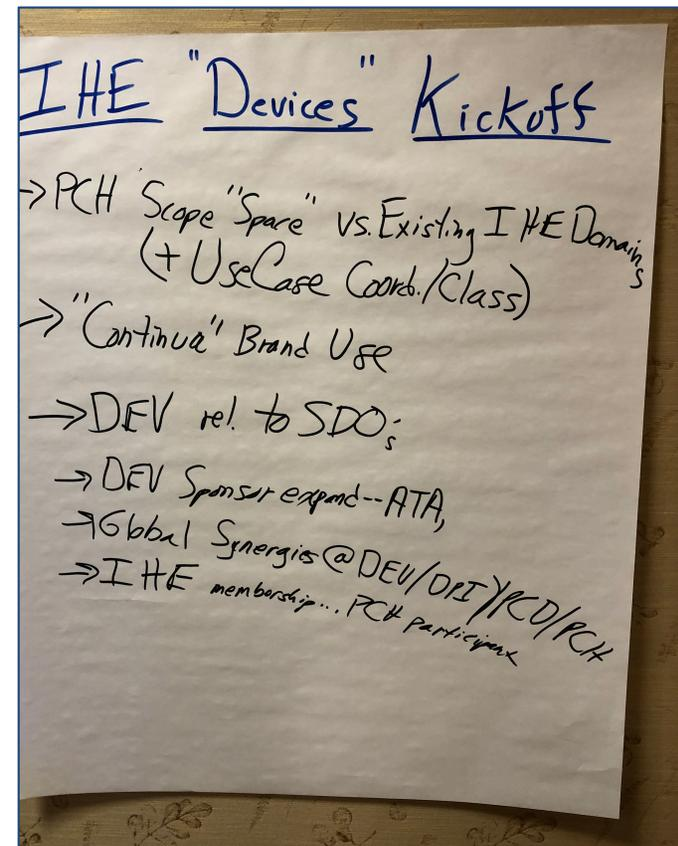 IHE "Devices" Kickoff
→ PCH Scope "Space" vs. Existing IHE Domains
(+ UseCase Coord./Class)
→ "Continua" Brand Use
→ DEV rel. to SDO's
→ DEV Sponsor expand -- ATA,
→ Global Synergies @ DEV/DPI/PCD/PCH
→ IHE membership... PCH participant